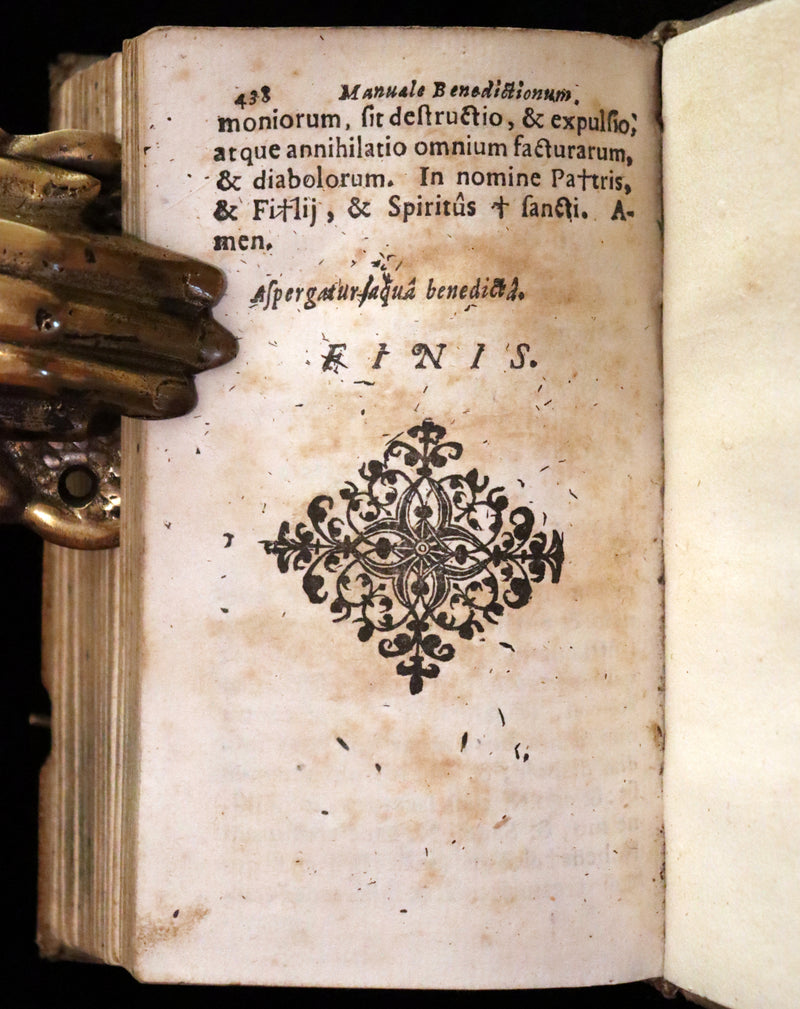 438 Manuale Benedictionum.
moniorum, ſit deſtructio, & expulſio;
atque annihilatio omnium facturarum,
& diabolorum. In nomine Pa†tris,
& Fi†lij, & Spiritûs † ſancti. A-
men.
Aſpergatur aquâ benedictâ.
FINIS.